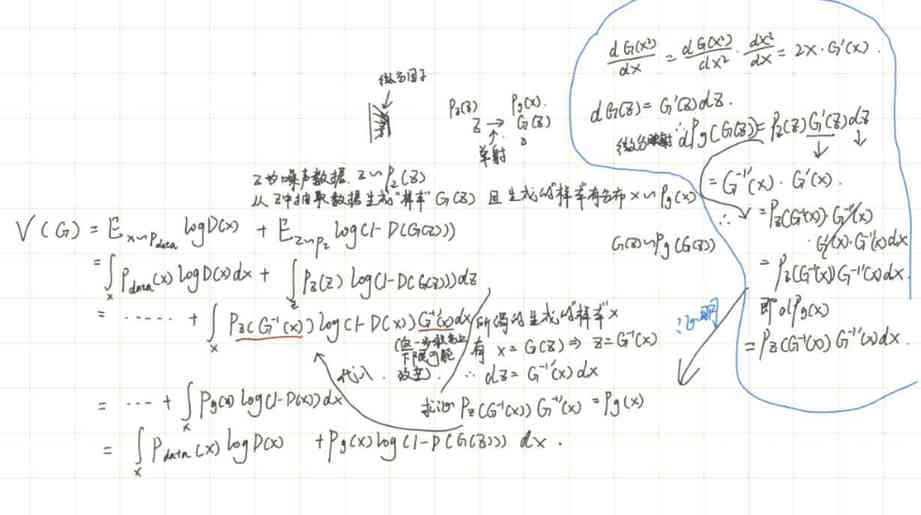 dG(x²)/dx = dG(x²)/dx² · dx²/dx = 2x · G'(x).
dG(z) = G'(z)dz.
∴ dPg(G(z)) = Pz(z)G'(z)dz
= G⁻¹'(x) · G'(x).
∴ = Pz(G⁻¹(x)) G⁻¹'(x)
· G'(x) · G⁻¹'(x)dx
= Pz(G⁻¹(x))G⁻¹'(x)dx.
即 dPg(x)
= Pz(G⁻¹(x)) G⁻¹'(x)dx.
微分因子
Pz(z) Pg(x).
z → G(z)
单射
z为噪声数据. z~Pz(z)
从z中抽取数据生成"样本"G(z) 且生成的"样本"有分布x~Pg(x)
G(z)~Pg(G(z))
V(G) = E x~Pdata logD(x) + E z~Pz log(1-D(G(z)))
= ∫x Pdata(x) logD(x)dx + ∫z Pz(z) log(1-D(G(z)))dz
= ······ + ∫x Pz(G⁻¹(x)) log(1-D(x)) G⁻¹'(x)dx 所得的生成的"样本"x
有 x = G(z) ⇒ z = G⁻¹(x)
代入 ∴ dz = G⁻¹'(x)dx
= ··· + ∫x Pg(x) log(1-D(x))dx 求证 Pz(G⁻¹(x)) G⁻¹'(x) = Pg(x)
= ∫x Pdata(x) logD(x) + Pg(x) log(1-D(G(z))) dx.